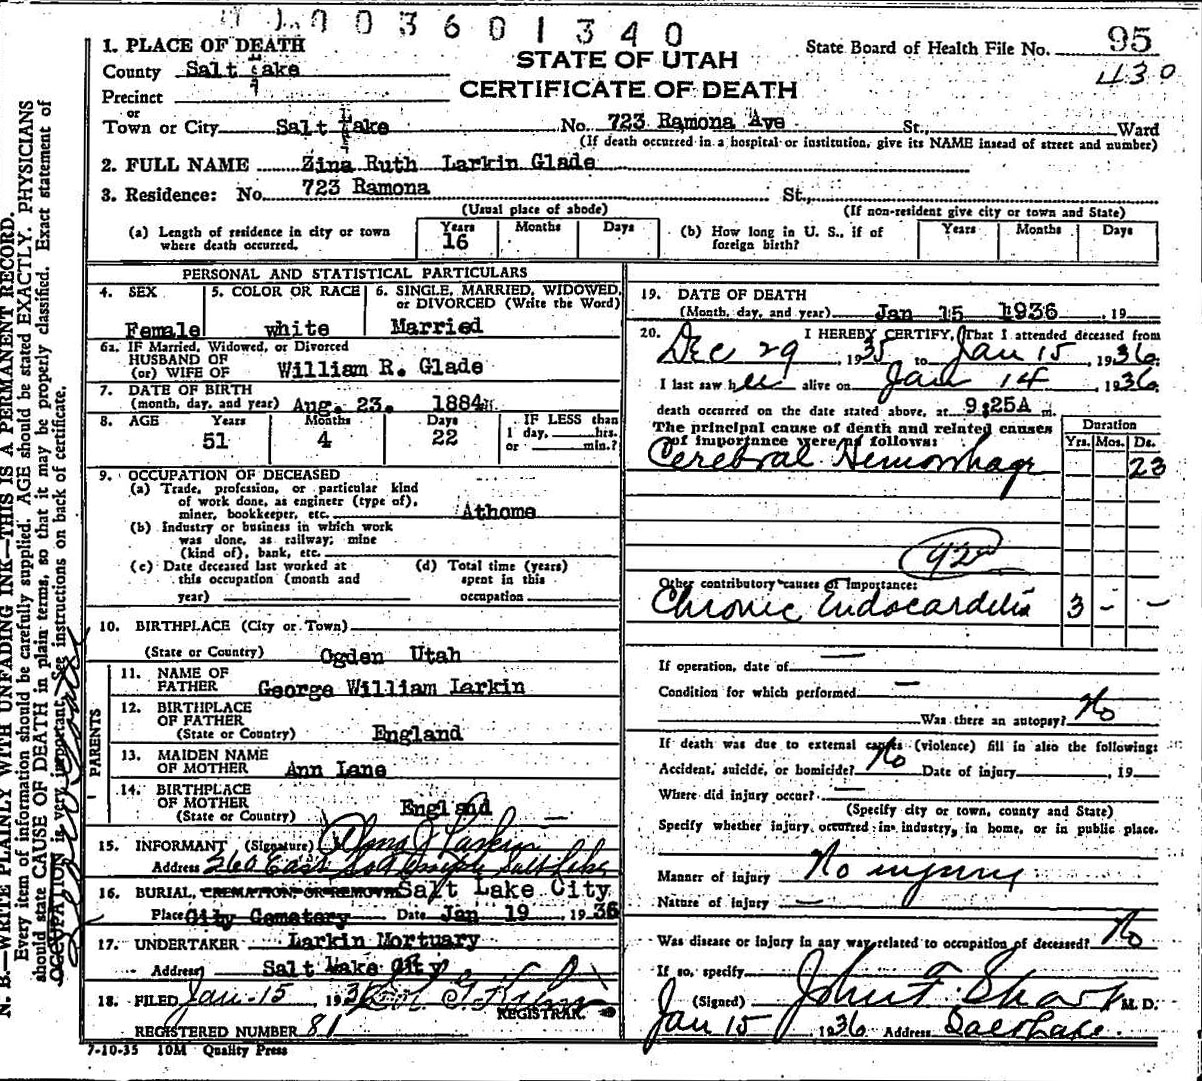 003601340
State Board of Health File No. 95
430
STATE OF UTAH
CERTIFICATE OF DEATH
1. PLACE OF DEATH
County Salt Lake
Precinct
or
Town or City Salt Lake No. 723 Ramona Ave St., Ward
(If death occurred in a hospital or institution, give its NAME insead of street and number)
2. FULL NAME Zina Ruth Larkin Glade
3. Residence: No. 723 Ramona St.,
(Usual place of abode) (If non-resident give city or town and State)
(a) Length of residence in city or town where death occurred. Years 16 Months Days
(b) How long in U. S., if of foreign birth? Years Months Days
PERSONAL AND STATISTICAL PARTICULARS
4. SEX Female
5. COLOR OR RACE white
6. SINGLE, MARRIED, WIDOWED, or DIVORCED (Write the Word) Married
6a. IF Married, Widowed, or Divorced
HUSBAND OF
(or) WIFE OF William R. Glade
7. DATE OF BIRTH
(month, day, and year) Aug. 23. 1884
8. AGE Years 51 Months 4 Days 22 IF LESS than 1 day, hrs. or min.?
9. OCCUPATION OF DECEASED
(a) Trade, profession, or particular kind
of work done, as engineer (type of),
miner, bookkeeper, etc. Athome
(b) Industry or business in which work
was done, as railway; mine
(kind of), bank, etc.
(c) Date deceased last worked at
this occupation (month and
year)
(d) Total time (years)
spent in this
occupation
10. BIRTHPLACE (City or Town)
(State or Country) Ogden Utah
PARENTS
11. NAME OF
FATHER George William Larkin
12. BIRTHPLACE
OF FATHER
(State or Country) England
13. MAIDEN NAME
OF MOTHER Ann Lane
14. BIRTHPLACE
OF MOTHER
(State or Country) England
15. INFORMANT (Signature) Alma J Larkin
Address 260 East So Temple Salt Lake
16. BURIAL, CREMATION OR REMOVAL Salt Lake City
Place City Cemetery Date Jan 19, 1936
17. UNDERTAKER Larkin Mortuary
Address Salt Lake City
18. FILED Jan-15, 193
REGISTRAR.
REGISTERED NUMBER 81
7-10-35 10M Quality Press
19. DATE OF DEATH
(Month, day, and year) Jan 15 1936, 19
20. I HEREBY CERTIFY, That I attended deceased from
Dec 29, 1935 to Jan 15, 1936.
I last saw her alive on Jan 14 1936.
death occurred on the date stated above, at 9:25A m.
The principal cause of death and related causes
of importance were as follows:
Duration
Yrs. Mos. Ds.
Cerebral Hemorrhage 23
92
Other contributory causes of importance:
Chronic Endocarditis 3 - -
If operation, date of —
Condition for which performed —
Was there an autopsy? No
If death was due to external causes (violence) fill in also the following:
Accident, suicide, or homicide? No Date of injury, 19
Where did injury occur? —
(Specify city or town, county and State)
Specify whether injury occurred in industry, in home, or in public place.
Manner of injury No injury
Nature of injury —
Was disease or injury in any way related to occupation of deceased? No
If so, specify
(Signed) John F. Sharp M. D.
Jan 15 1936 Address Salt Lake.
N. B.—WRITE PLAINLY WITH UNFADING INK—THIS IS A PERMANENT RECORD.
Every item of information should be carefully supplied. AGE should be stated EXACTLY. PHYSICIANS
should state CAUSE OF DEATH in plain terms, so that it may be properly classified. Exact statement of
OCCUPATION is very important. See instructions on back of certificate.